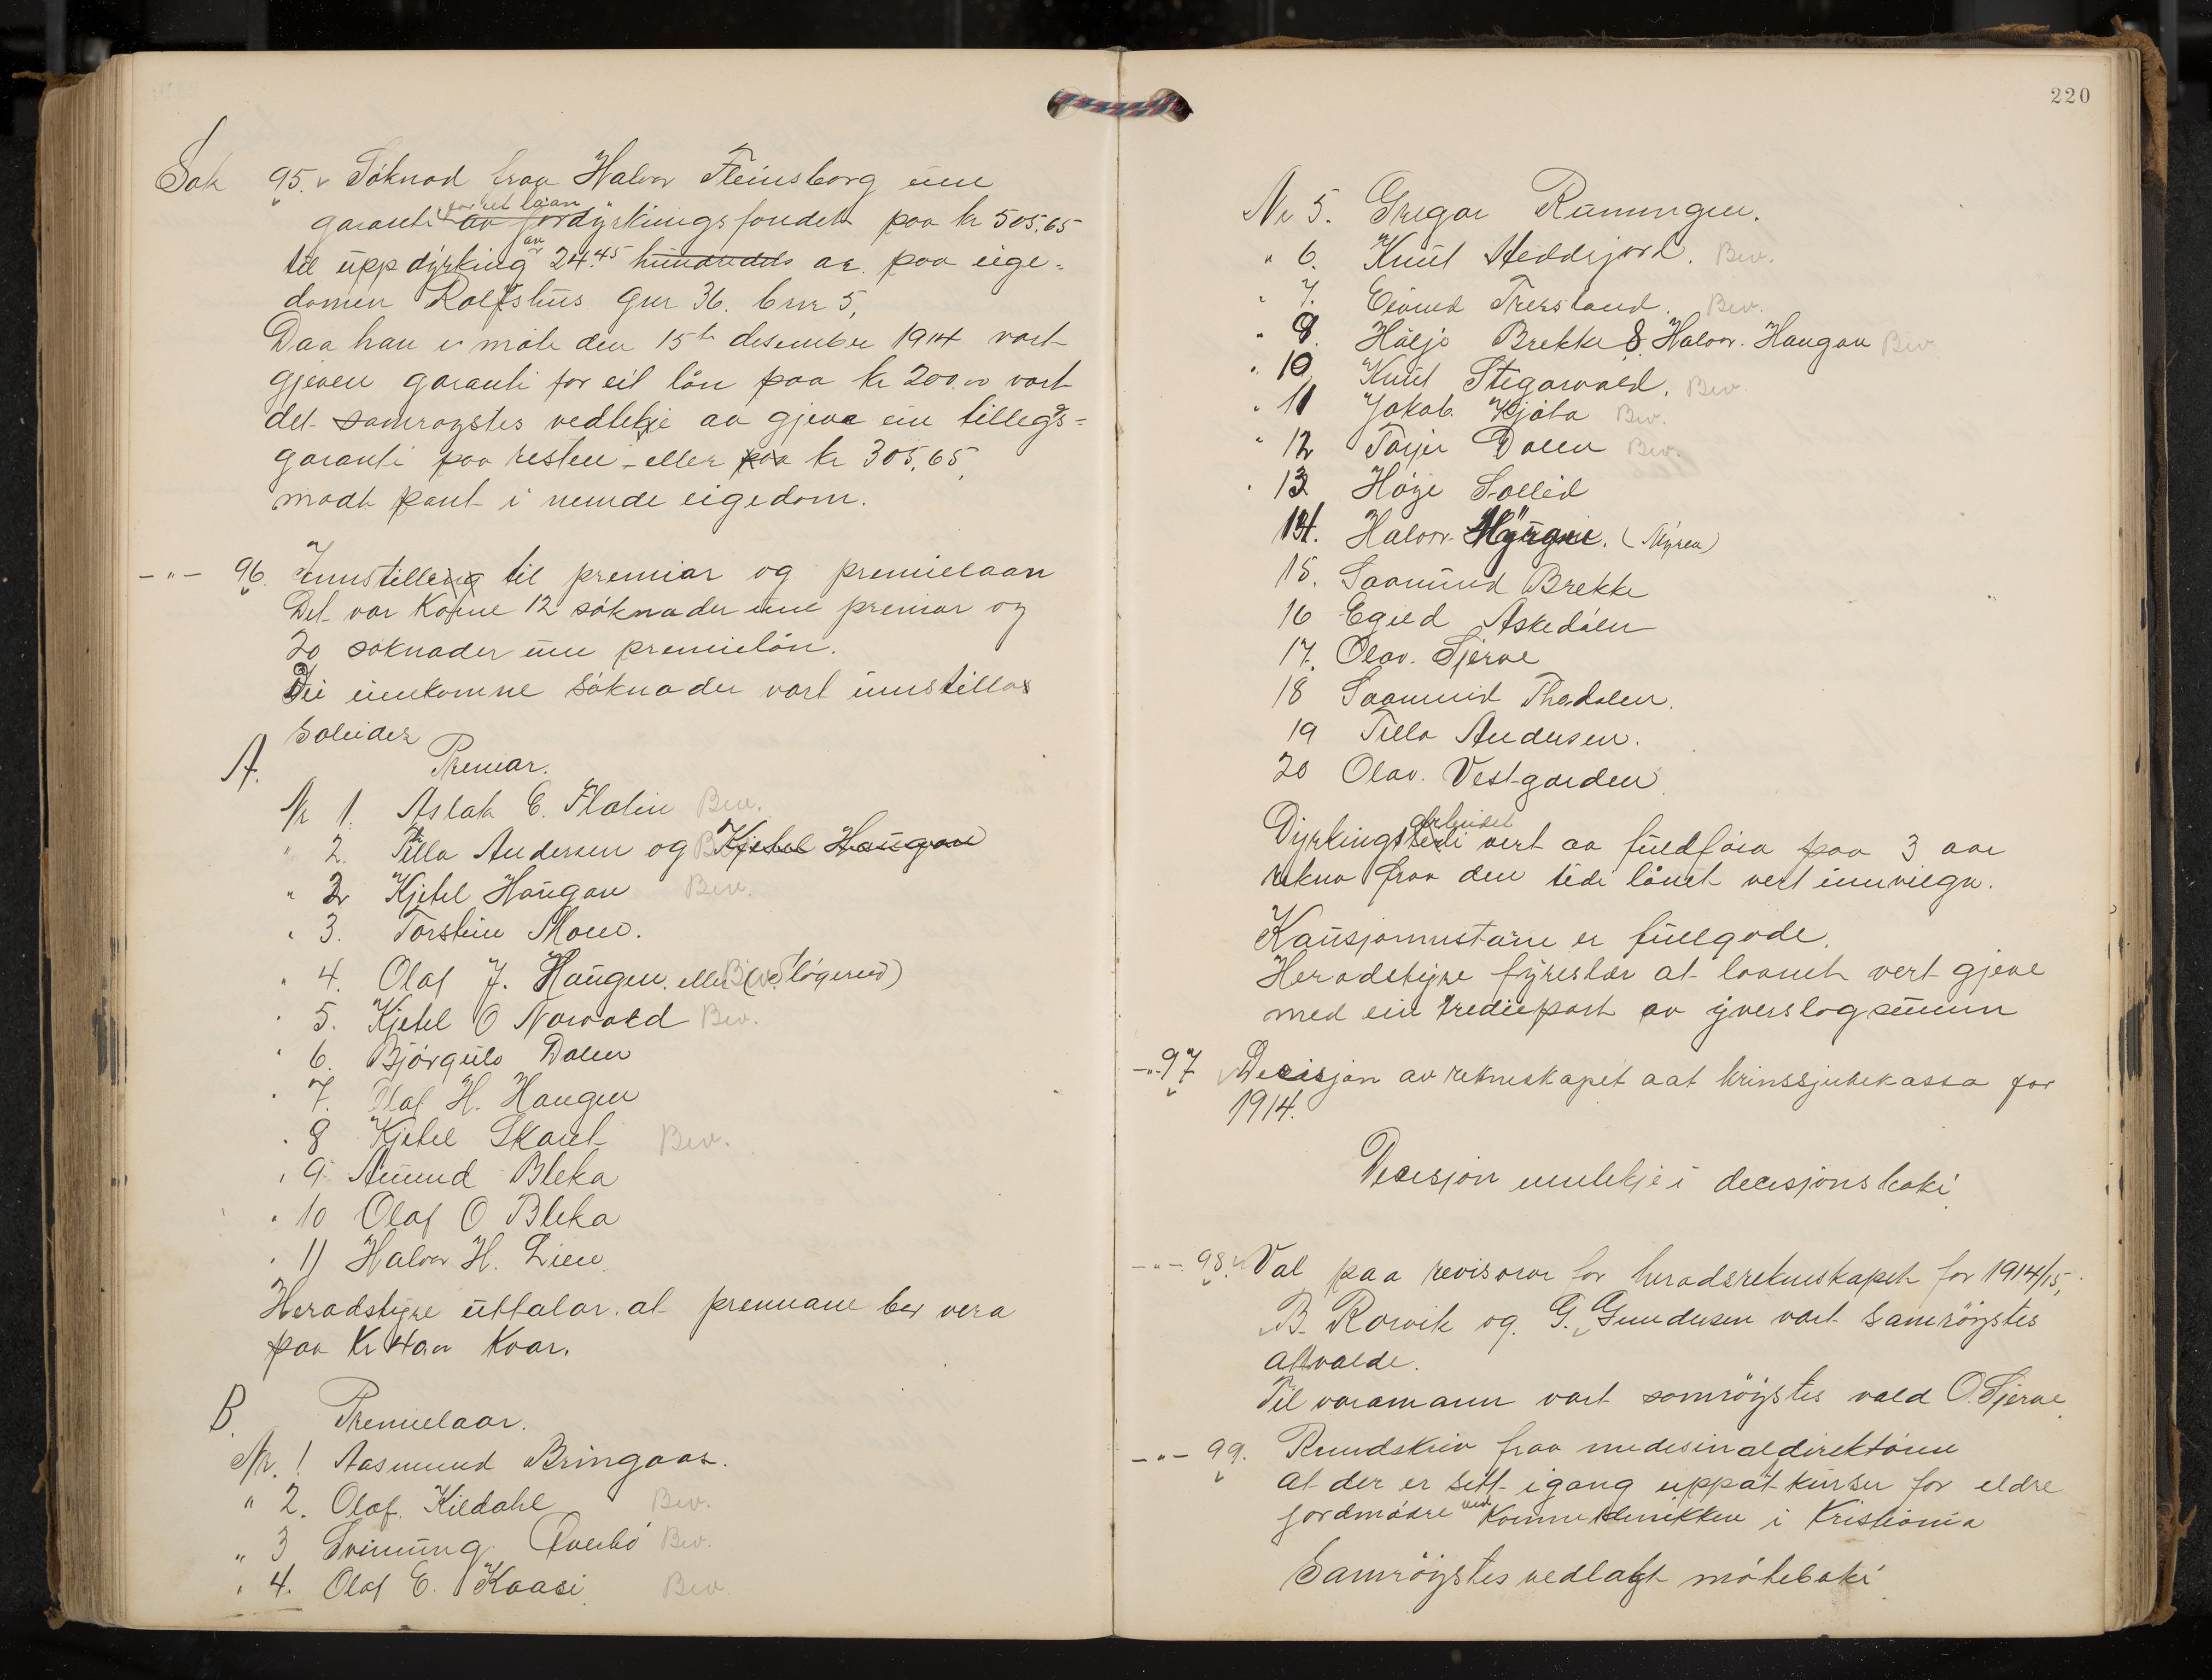 Sak 95. Söknad fraa Halvor Fleinsborg um
garanti for eit laan av jordyrkingsfondet paa kr 505.65
til uppdyrking av 24.45 hundredels ar. paa eige-
domen Rolfshus gnr 36. bnr 5,
Daa han i möte den 15de desember 1914 vart
gjeven garanti for eit lön paa kr 200.00 vart
det samroystes vedtekje aa gjeva ein tillegs-
garanti paa resten - eller paa kr 305,65
modt pant i nemde eigedom.
-"- 96. Innstilling til premiar og premielaan
Det var Kome 12 söknader um premiar og
20 söknader um premielön.
Dei innkomne söknader vart innstillas
soleides
A. Premar.
Nr 1. Aslak E. Flatin Bev.
" 2. Tilla Andersen og Kjetel Haugan
" 2 Kjetel Haugan Bev.
" 3. Torstein Moen.
" 4. Olaf J. Haugen. eller Bev.
" 5. Kjetel O Norvald Bev.
" 6. Björgulv Dalen
" 7. Olaf H. Haugen
" 8 Kjetel Skart Bev.
" 9 Amund Bleka
" 10 Olaf O Bleka
" 11 Halvor H. Lien
Heradstyre uttalar at premiane bör vera
paa Kr 40.00 Kvar.
B. Premielaan.
Nr. 1 Aasmund Bringaas.
" 2. Olaf. Kildahl Bev.
" 3 Sveinung Överbö Bev.
" 4. Olaf E. Kaasi Bev
220
Nr 5. Gregar Runningen.
" 6. Knut Heddejord. Bev.
" 7. Eivind Trersland. Bev.
" 8. Hölje Brekke & Halvor. Haugan Bev
" 10 Knut Stegarvald. Bev.
" 11 Jakob Kjöta Bev.
" 12 Tarjei Dalen Bev.
" 13 Höye Sollid
14. Halvor Haugen. (Myren)
15. Saamund Brekke
16 Egild Askedalen
17. Olav. Tjerve
18 Saamund Thodalen.
19 Tilla Andersen.
20 Olav. Vestgarden
Dyrkingsarbeidet vert aa fuldföra paa 3 aar
rekna fraa den tidi lönet vert innvilga.
Kausjonnistane er fullgode.
Heradstyre fyreslær at laanet vert gjeve
med ein trediepart av yverslagsumen
-"- 97 Decisjon av rekneskapet aat krinssjukekassa for
1914.
Decisjon innlekje i decisjonsboki
-"- 98. Val paa revisorar for heradsrekneskapet for 1914/15,
B. Rorvik og G. Gundersen vart samröystes
attvalde.
Til varamann vart samröystes vald O. Tjerve
-"- 99. Rundskriv fraa medisinaldirektören
at der er sett igang uppatkurser for eldre
jordmödre ved Kvinneklinikken i Kristiania
Samröystes vedlagt möteboki